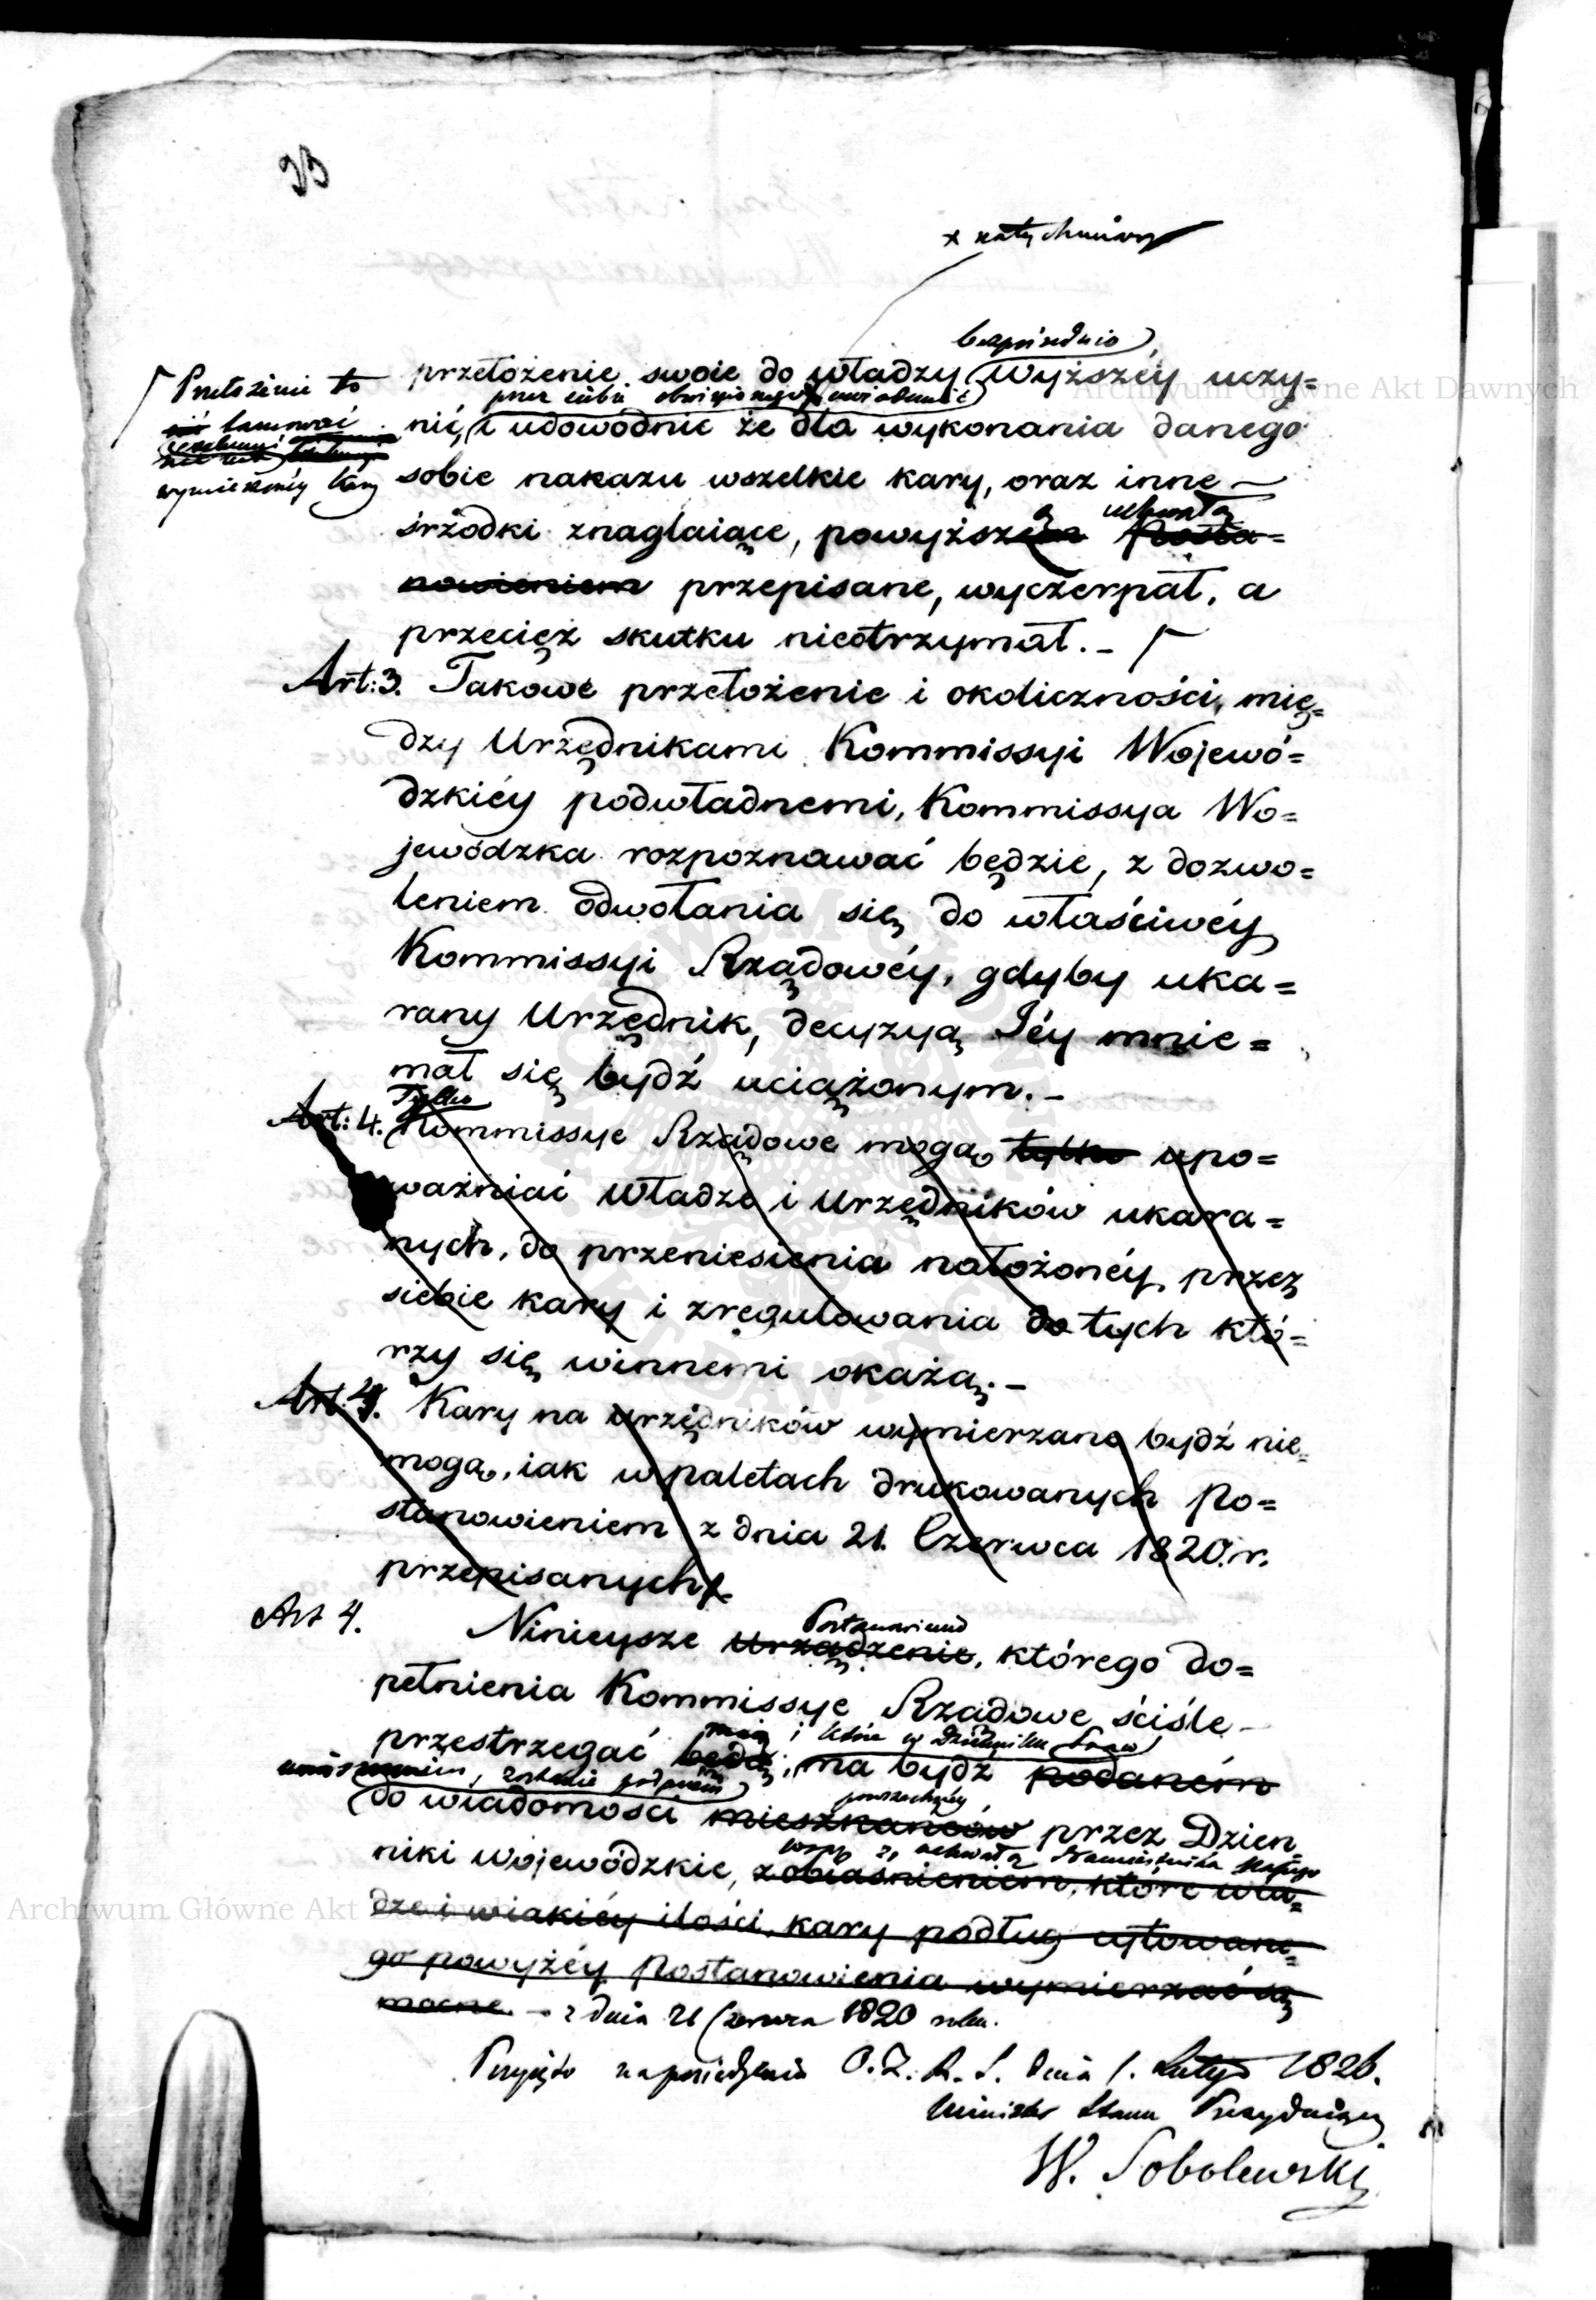 93
× natychmiast
bezpośrednio
Przełożenie to
tamować
wymierzonéy kary
przełożenie swoie do władzy wyższéy uczy=
przez siebie obowiązanego
nić, i udowodnić że dla wykonania danego
sobie nakazu wszelkie kary, oraz inne
uchwałą
śrzodki znaglaiące, powyższém Posta=
nowieniem przepisane, wyczerpał, a
przecięż skutku nieotrzymał. –
Art: 3. Takowe przełożenie i okoliczności, mię=
dzy Urzędnikami Kommissyi Wojewó=
dzkiéy podwładnemi, Kommissya Wo=
jewódzka rozpoznawać będzie, z dozwo=
leniem odwołania się do właściwéy
Kommissyi Rządowéy, gdyby uka=
rany Urzędnik, decyzyą Jéy mnie=
mał się bydź uciążonym. –
Tylko
Art: 4. Kommissye Rządowe mogą tylko upo=
ważniać Władze i Urzędników ukara=
nych, do przeniesienia nałożonéy przez
siebie kary i zregulowania do tych któ=
rzy się winnemi okażą. –
Art. 4. Kary na urzędników wymierzane bydź nie=
mogą, iak w paletach drukowanych Po=
stanowieniem z dnia 21. Czerwca 1820. r.
przepisanych.
Art 4.
Postanowienie
Ninieysze Urządzenie, którego do=
pełnienia Kommissye Rządowe ściśle
maią i które w Dzienniku Praw
przestrzegać będą, ma bydź podaném
umieszczoném, zostanie podaném
powszechnéy
do wiadomości mieszkańców przez Dzien=
wraz z uchwałą Namiestnika Naszego
niki wojewódzkie, z obiaśnieniem, które wła=
dze i wiakiéy ilości, kary podług cytowane=
go powyżéy Postanowienia wymierzać są
mocne. z dnia 21 Czerwca 1820 roku.
Przyjęto na posiedzeniu O. Z. R. S. dnia 1. Lutego 1826.
Minister Stanu Prezyduiący
W. Sobolewski
Archiwum Główne Akt Dawnych
Archiwum Główne Akt Dawnych